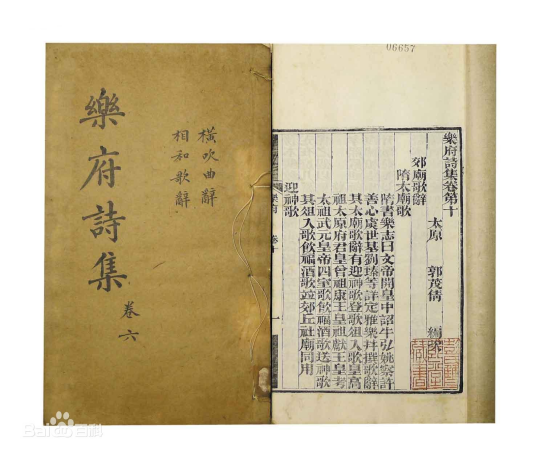 樂府詩集
卷六
橫吹曲辭
相和歌辭
06657
樂府詩集卷第十
太原 郭茂倩 編次
郊廟歌辭
隋太廟歌
隋書樂志曰文帝開皇中詔牛弘姚察許
善心虞世基劉臻等詳定雅樂并撰歌辭
其太廟歌辭有迎神歌登歌俎入歌皇高
祖太原府君皇曾祖康王皇祖獻王皇考
太祖武元皇帝四室歌飲福酒歌送神歌
其俎入歌飲福酒歌並郊丘社廟同用
迎神歌
Bai 百科